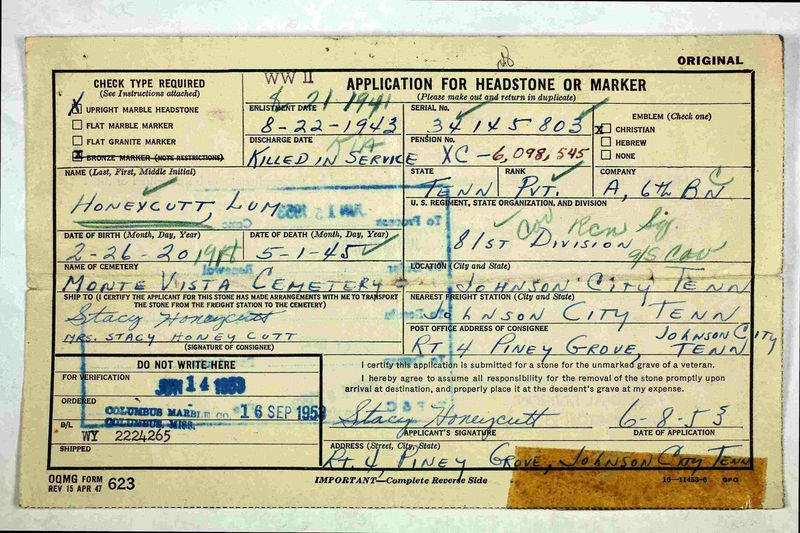 ORIGINAL
WW II
CHECK TYPE REQUIRED
(See Instructions attached)
X UPRIGHT MARBLE HEADSTONE
FLAT MARBLE MARKER
FLAT GRANITE MARKER
BRONZE MARKER (NOTE RESTRICTIONS)
APPLICATION FOR HEADSTONE OR MARKER
(Please make out and return in duplicate)
ENLISTMENT DATE
8 21 1941
8-22-1943
DISCHARGE DATE
KIA
KILLED IN SERVICE
SERIAL No.
34145803
PENSION No.
XC-6,098,545
EMBLEM (Check one)
X CHRISTIAN
HEBREW
NONE
NAME (Last, First, Middle Initial)
HONEYCUTT, LUM
STATE
TENN
RANK
PVT.
COMPANY
A, 6TH BN
C
U. S. REGIMENT, STATE ORGANIZATION, AND DIVISION
Cav Rcn
81ST DIVISION
DATE OF BIRTH (Month, Day, Year)
2-26-20
DATE OF DEATH (Month, Day, Year)
5-1-45
NAME OF CEMETERY
MONTE VISTA CEMETERY
LOCATION (City and State)
JOHNSON CITY TENN
SHIP TO (I CERTIFY THE APPLICANT FOR THIS STONE HAS MADE ARRANGEMENTS WITH ME TO TRANSPORT
THE STONE FROM THE FREIGHT STATION TO THE CEMETERY)
Stacy Honeycutt
MRS. STACY HONEYCUTT
(SIGNATURE OF CONSIGNEE)
NEAREST FREIGHT STATION (City and State)
JOHNSON CITY TENN
POST OFFICE ADDRESS OF CONSIGNEE
RT 4 PINEY GROVE, JOHNSON CITY TENN
DO NOT WRITE HERE
FOR VERIFICATION
JUN 14 1953
ORDERED
COLUMBUS MARBLE CO. 16 SEP 1953
COLUMBUS, MISS.
B/L
WY 2224265
SHIPPED
I certify this application is submitted for a stone for the unmarked grave of a veteran.
I hereby agree to assume all responsibility for the removal of the stone promptly upon
arrival at destination, and properly place it at the decedent's grave at my expense.
Stacy Honeycutt 6-8-53
APPLICANT'S SIGNATURE DATE OF APPLICATION
ADDRESS (Street, City, State)
RT. 4, PINEY GROVE, JOHNSON CITY TENN
OQMG FORM
REV 15 APR 47 623
IMPORTANT—Complete Reverse Side
16—11453-6 GPO